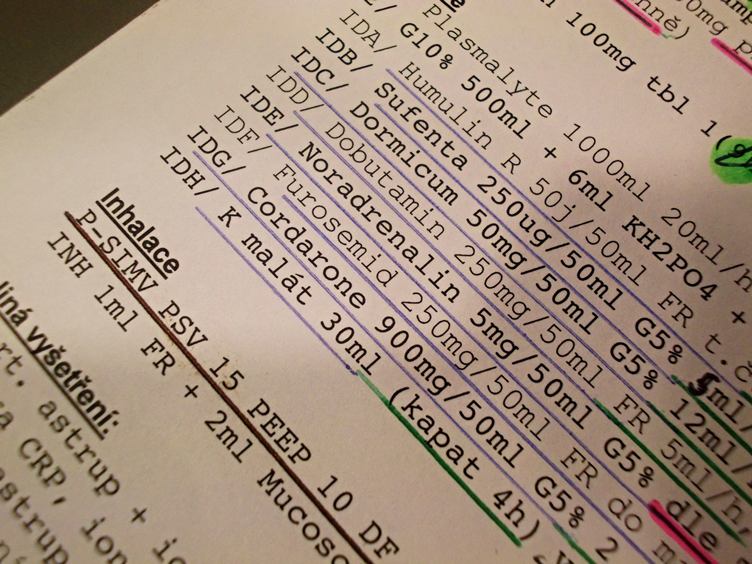 nně)
100mg tbl 1
Plasmalyte 1000ml 20ml/h
G10% 500ml + 6ml KH2PO4 +
IDA/ Humulin R 50j/50ml FR t.č
IDB/ Sufenta 250ug/50ml G5% 5ml/
IDC/ Dormicum 50mg/50ml G5% 12ml/
IDD/ Dobutamin 250mg/50ml FR 5ml/h
IDE/ Noradrenalin 5mg/50ml G5% dle
IDF/ Furosemid 250mg/50ml FR do
IDG/ Cordarone 900mg/50ml G5% 2
IDH/ K malát 30ml (kapat 4h)
Inhalace
P-SIMV PSV 15 PEEP 10 DF
INH 1ml FR + 2ml Mucoso
jiná vyšetření:
rt. astrup + io
CRP, ion
astrup